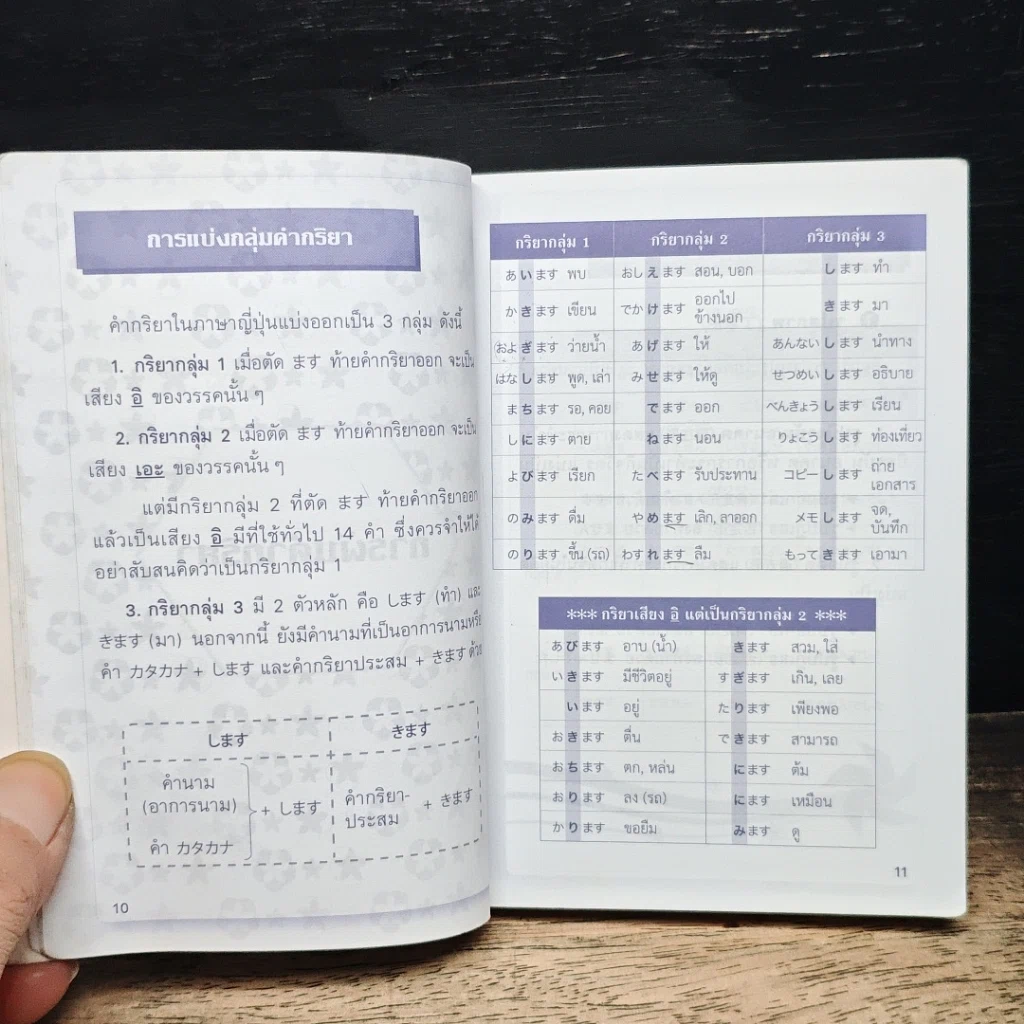 การแบ่งกลุ่มคำกริยา
คำกริยาในภาษาญี่ปุ่นแบ่งออกเป็น 3 กลุ่ม ดังนี้
1. กริยากลุ่ม 1 เมื่อตัด ます ท้ายคำกริยาออก จะเป็น
เสียง อิ ของวรรคนั้น ๆ
2. กริยากลุ่ม 2 เมื่อตัด ます ท้ายคำกริยาออก จะเป็น
เสียง เอะ ของวรรคนั้น ๆ
แต่มีกริยากลุ่ม 2 ที่ตัด ます ท้ายคำกริยาออก
แล้วเป็นเสียง อิ มีที่ใช้ทั่วไป 14 คำ ซึ่งควรจำให้ได้
อย่าสับสนคิดว่าเป็นกริยากลุ่ม 1
3. กริยากลุ่ม 3 มี 2 ตัวหลัก คือ します (ทำ) และ
きます (มา) นอกจากนี้ ยังมีคำนามที่เป็นอาการนามหรือ
คำ カタカナ + します และคำกริยาประสม + きます ด้วย
します きます
คำนาม
(อาการนาม)
คำ カタカナ
+ します
คำกริยา-
ประสม
+ きます
10
กริยากลุ่ม 1 กริยากลุ่ม 2 กริยากลุ่ม 3
あいます พบ おしえます สอน, บอก します ทำ
かきます เขียน でかけます ออกไปข้างนอก きます มา
およぎます ว่ายน้ำ あげます ให้ あんないします นำทาง
はなします พูด, เล่า みせます ให้ดู せつめいします อธิบาย
まちます รอ, คอย でます ออก べんきょうします เรียน
しにます ตาย ねます นอน りょこうします ท่องเที่ยว
よびます เรียก たべます รับประทาน コピーします ถ่ายเอกสาร
のみます ดื่ม やめます เลิก, ลาออก メモします จด, บันทึก
のります ขึ้น (รถ) わすれます ลืม もってきます เอามา
*** กริยาเสียง อิ แต่เป็นกริยากลุ่ม 2 ***
あびます อาบ (น้ำ) きます สวม, ใส่
いきます มีชีวิตอยู่ すぎます เกิน, เลย
います อยู่ たります เพียงพอ
おきます ตื่น できます สามารถ
おちます ตก, หล่น にます ต้ม
おります ลง (รถ) にます เหมือน
かります ขอยืม みます ดู
11